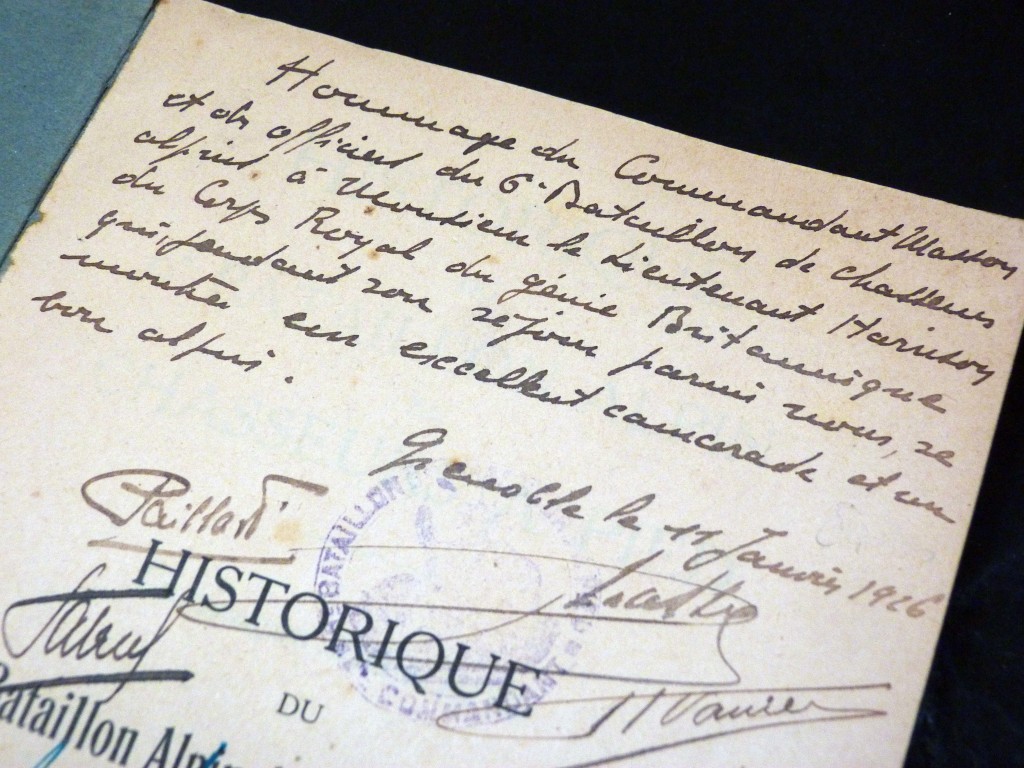 Hommage du Commandant Masson
et des officiers du 6e Bataillon de chasseurs
alpins à Monsieur le Lieutenant Harrison
du Corps Royal du génie Britannique
qui, pendant son séjour parmi nous, se
montra un excellent camarade et un
bon alpin.
Grenoble le 11 Janvier 1926
Paillard
HISTORIQUE
DU
Bataillon
BATAILLON
COMMANDANT